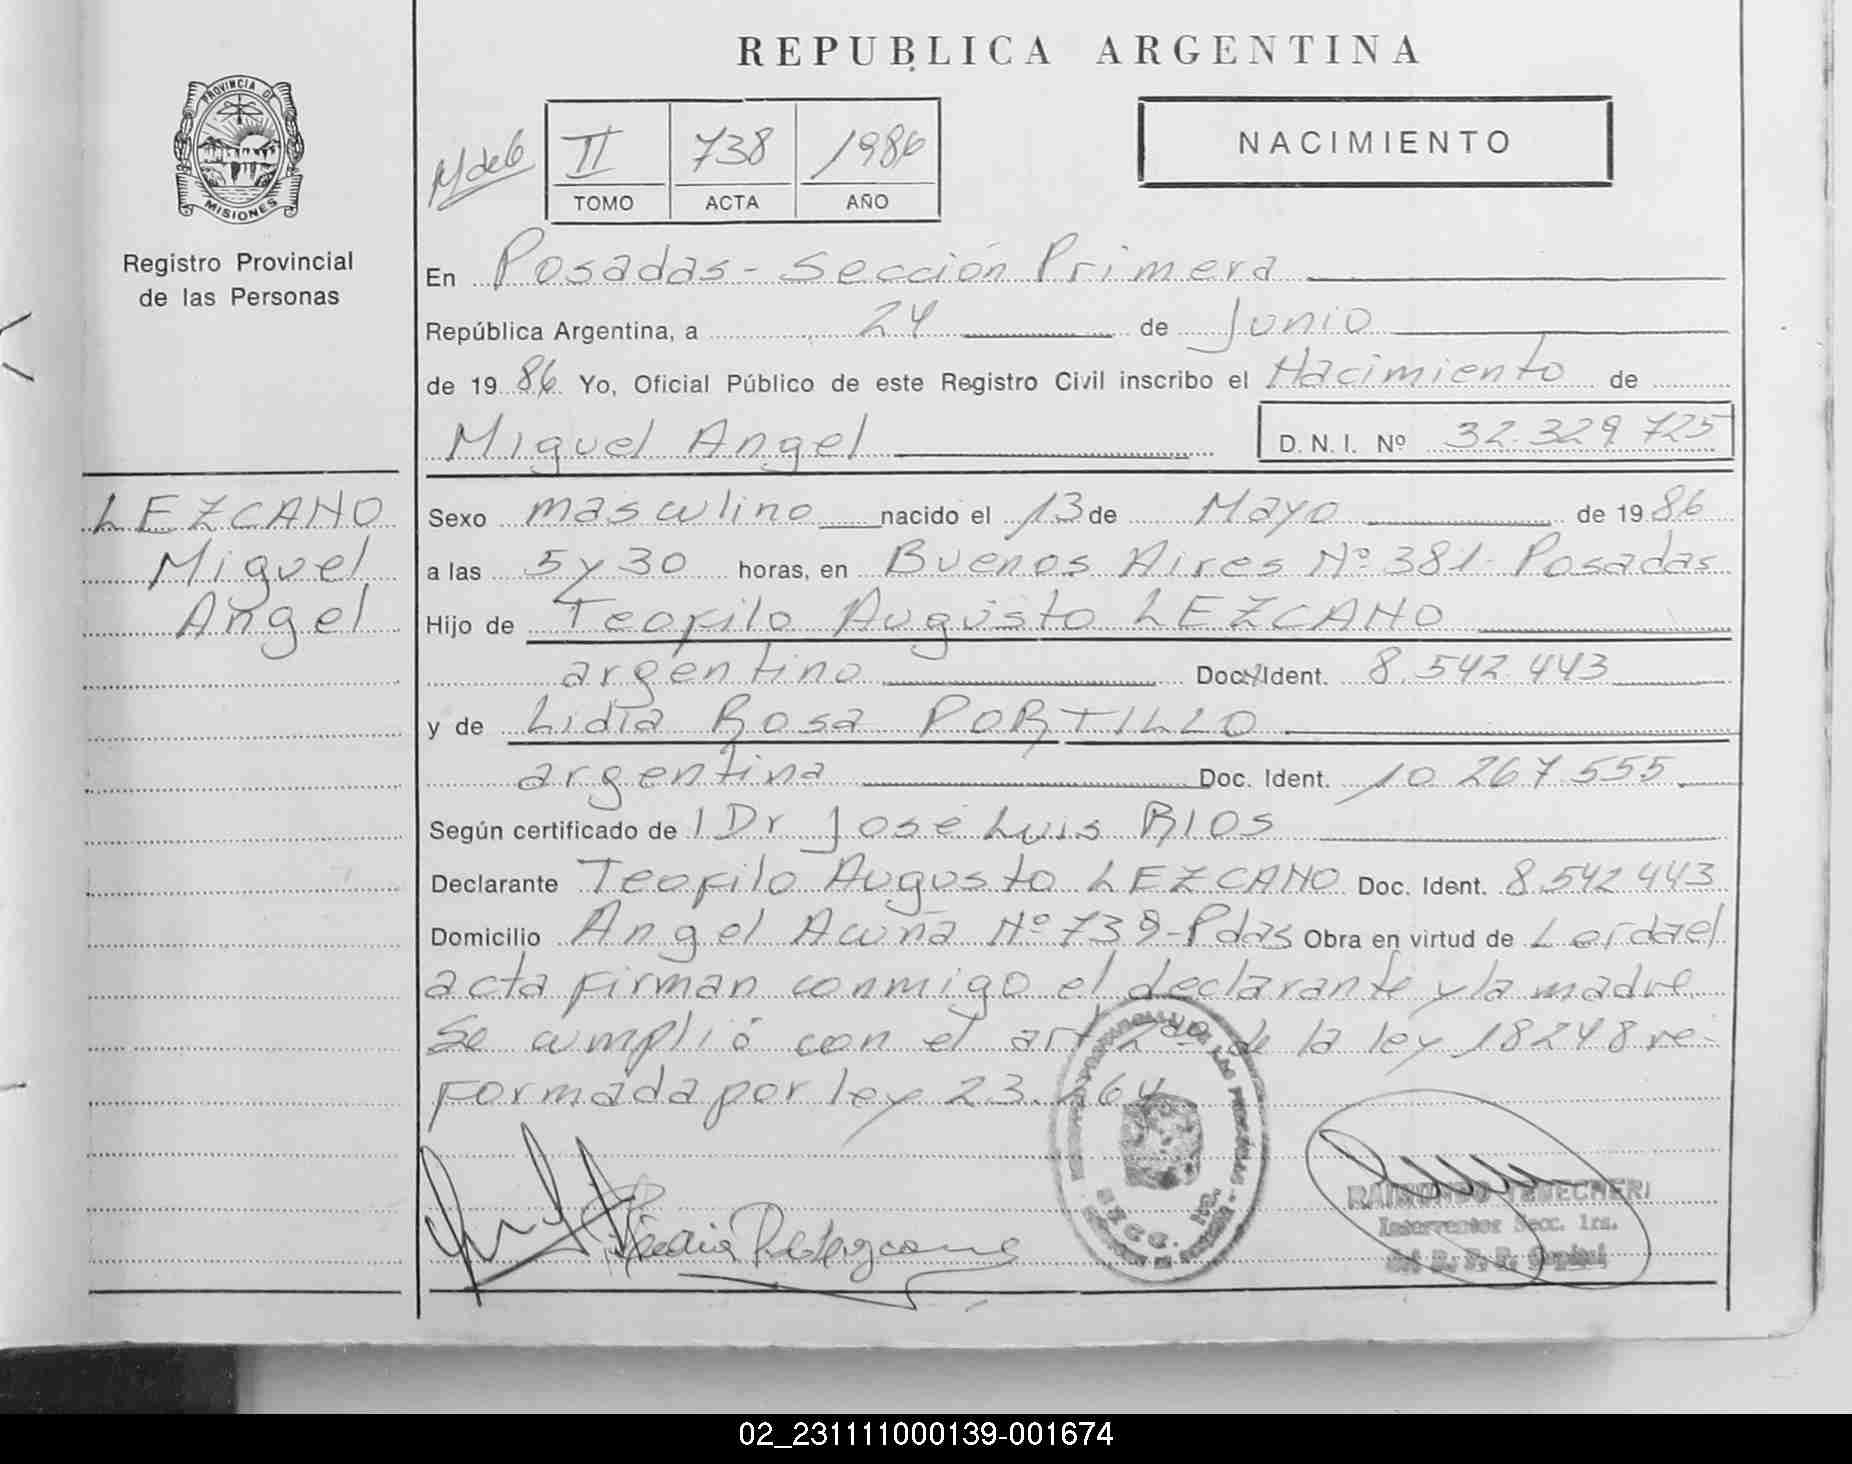 REPUBLICA ARGENTINA
PROVINCIA DE
MISIONES
Registro Provincial
de las Personas
II 738 1986
TOMO ACTA AÑO
NACIMIENTO
En Posadas - Sección Primera
República Argentina, a 24 de Junio
de 1986 Yo, Oficial Público de este Registro Civil inscribo el Nacimiento de
Miguel Angel D.N.I. Nº 32.329.725
LEZCANO
Miguel
Angel
Sexo masculino nacido el 13 de Mayo de 1986
a las 5 y 30 horas, en Buenos Aires Nº 381 - Posadas
Hijo de Teofilo Augusto LEZCANO
argentino Doc. Ident. 8.542.443
y de Lidia Rosa PORTILLO
argentina Doc. Ident. 10.267.555
Según certificado de 1 Dr José Luis RIOS
Declarante Teofilo Augusto LEZCANO Doc. Ident. 8.542.443
Domicilio Angel Acuña Nº 739 - Pdas Obra en virtud de Leída el
acta firman conmigo el declarante y la madre
Se cumplió con el art 2do de la ley 18248 re-
formada por ley 23.264
Interventor Secc. 1ra.
02_231111000139-001674